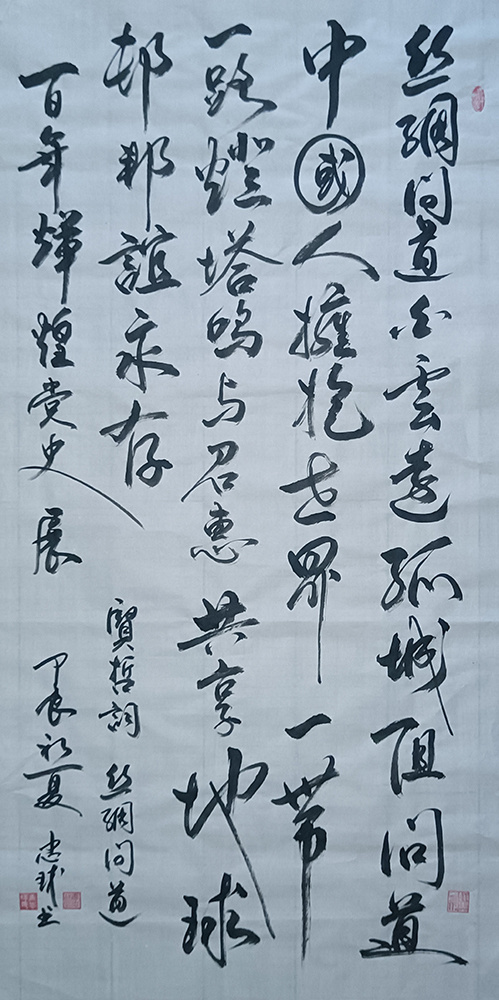 丝绸问道白云远孤城阻问道
中国人拥抱世界一带
一路灯塔鸣与召惠共享地球
邨邦谊永存
宝哲词丝绸问道
百年辉煌党史展
甲辰初夏忠球书